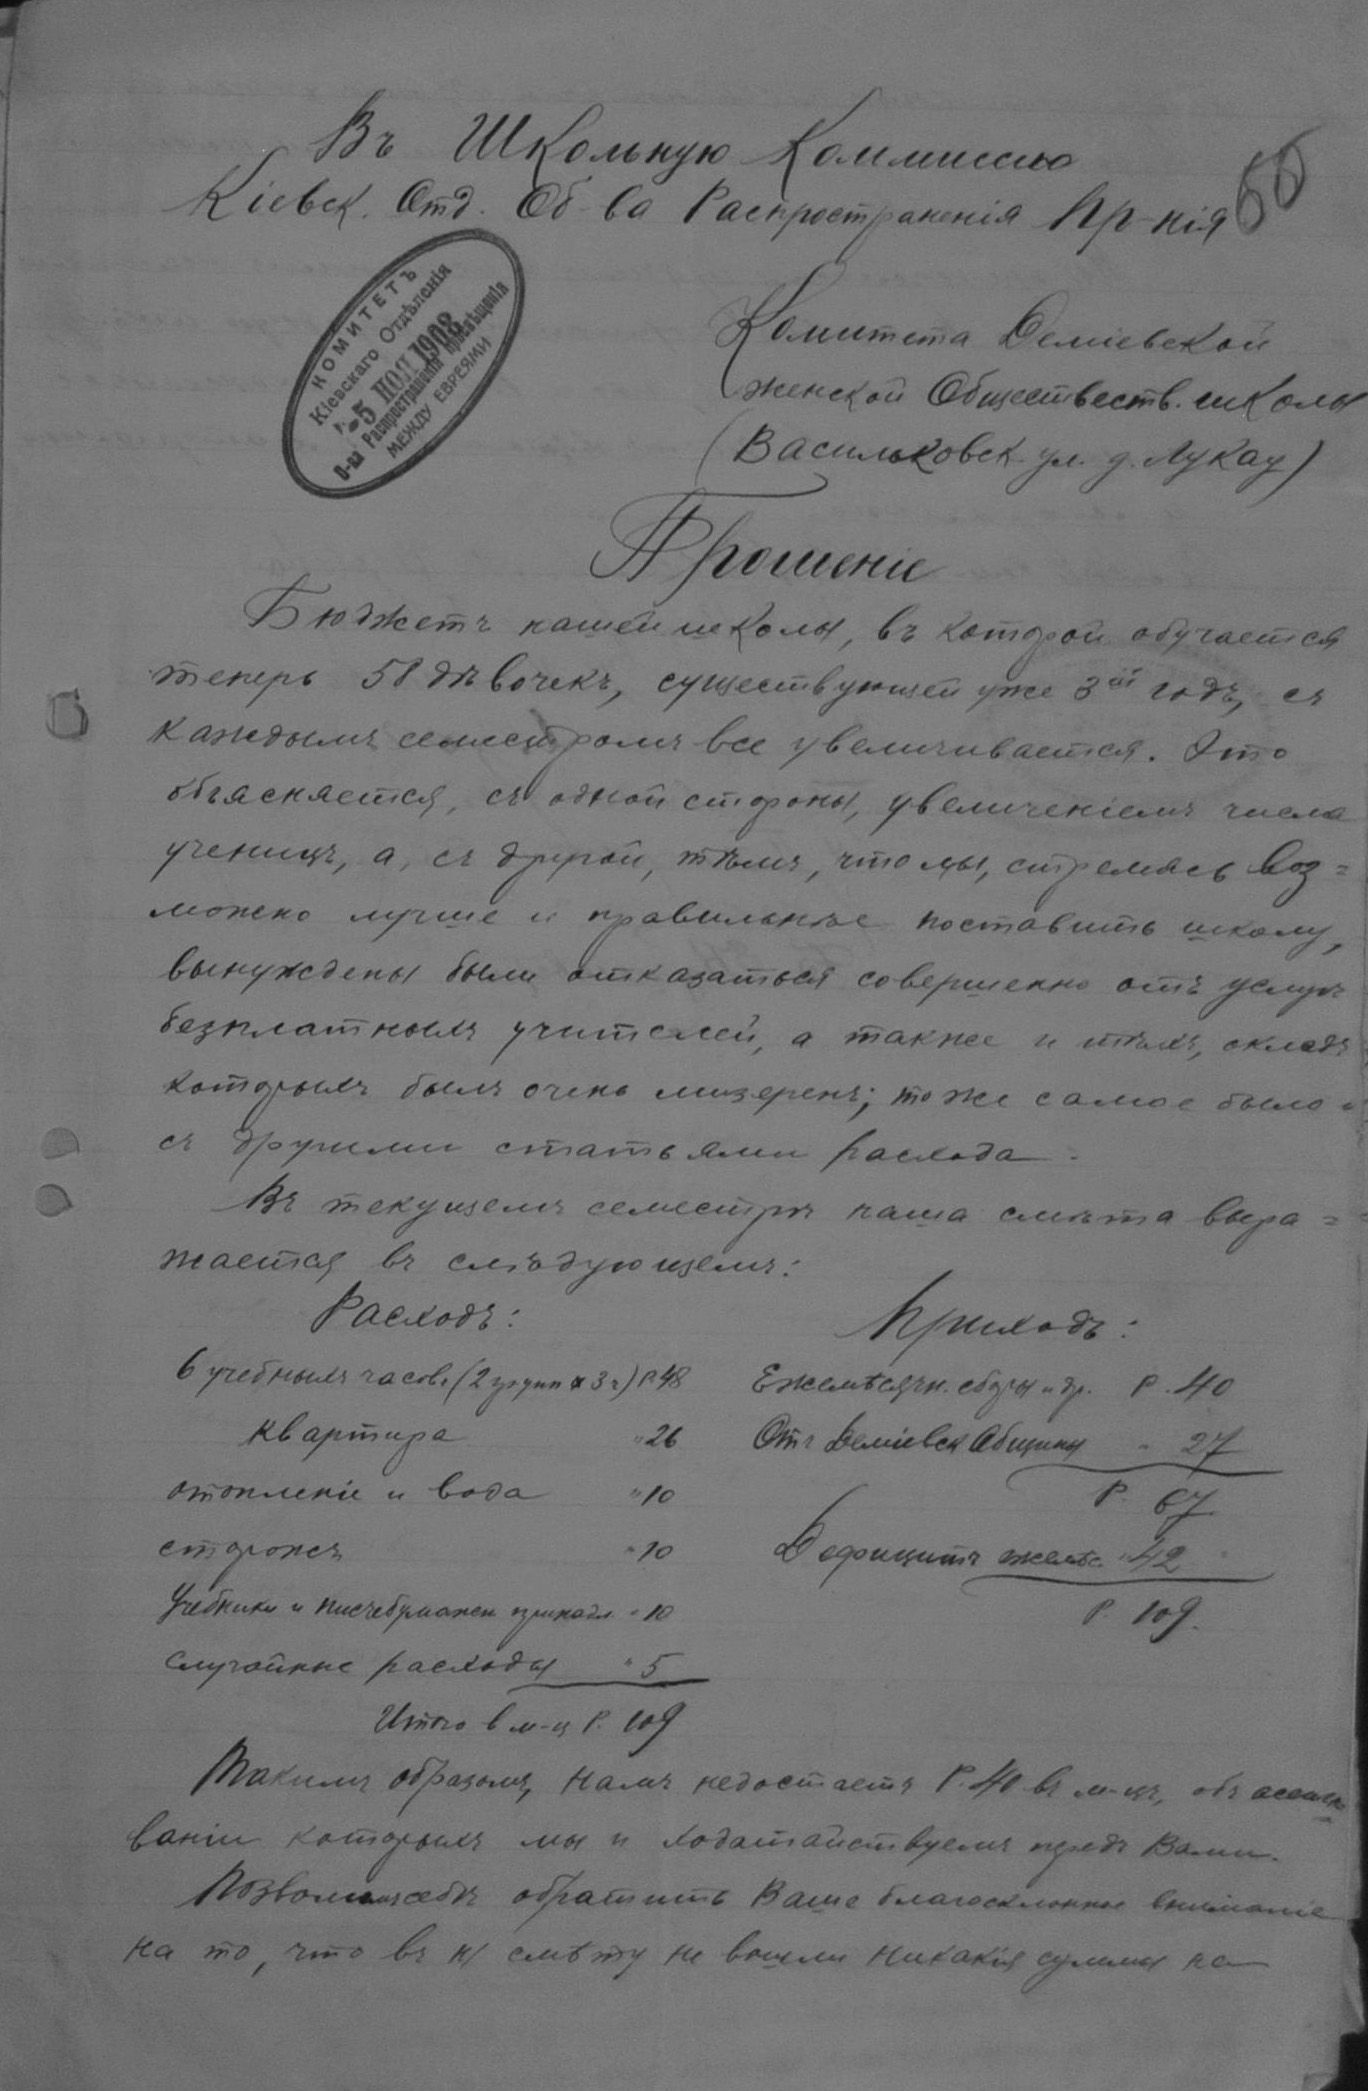 Въ Школьную Коммиссію
Кіевск. Отд. Об-ва Распространенія Пр-нія
КОМИТЕТЪ
Кіевскаго Отдѣленія
5 1908
О-ва Распространенія Просвѣщенія
МЕЖДУ ЕВРЕЯМИ
Комитета Деміевской
женской Обществеств. школы
(Васильковск. ул. д. Лукау)
Прошеніе
Бюджетъ нашей школы, въ которой обучается
теперь 58 дѣвочекъ, существующей уже 3ій годъ, съ
каждымъ семестромъ все увеличивается. Это
объясняется, съ одной стороны, увеличеніемъ числа
ученицъ, а, съ другой, тѣмъ, что мы, стремясь воз=
можно лучше и правильнѣе поставить школу,
вынуждены были отказаться совершенно отъ услугъ
безплатныхъ учителей, а также и тѣхъ, окладъ
которыхъ былъ очень мизеренъ; то же самое было и
съ другими статьями расхода.
Въ текущемъ семестрѣ наша смѣта выра=
жается въ слѣдующемъ:
Расходъ:
6 учебныхъ часов. (2 групп х 3 ч) Р. 48
квартира " 26
отопленіе и вода " 10
сторожъ " 10
Учебники и писчебумажн принадл " 10
Случайные расходы " 5
Итого в м-ц Р. 109
Приходъ:
Ежемѣсячн. сборы и др. Р. 40
Отъ Деміевск Общины " 27
Р. 67
Дефицитъ ежемѣс. 42
Р. 109.
Такимъ образомъ, намъ недостаетъ Р. 40 въ м-цъ, объ ассигно
ваніи которыхъ мы и ходатайствуемъ предъ Вами.
Позволимъ себѣ обратить Ваше благосклонное вниманіе
на то, что въ н/ смѣту не вошли никакія суммы на